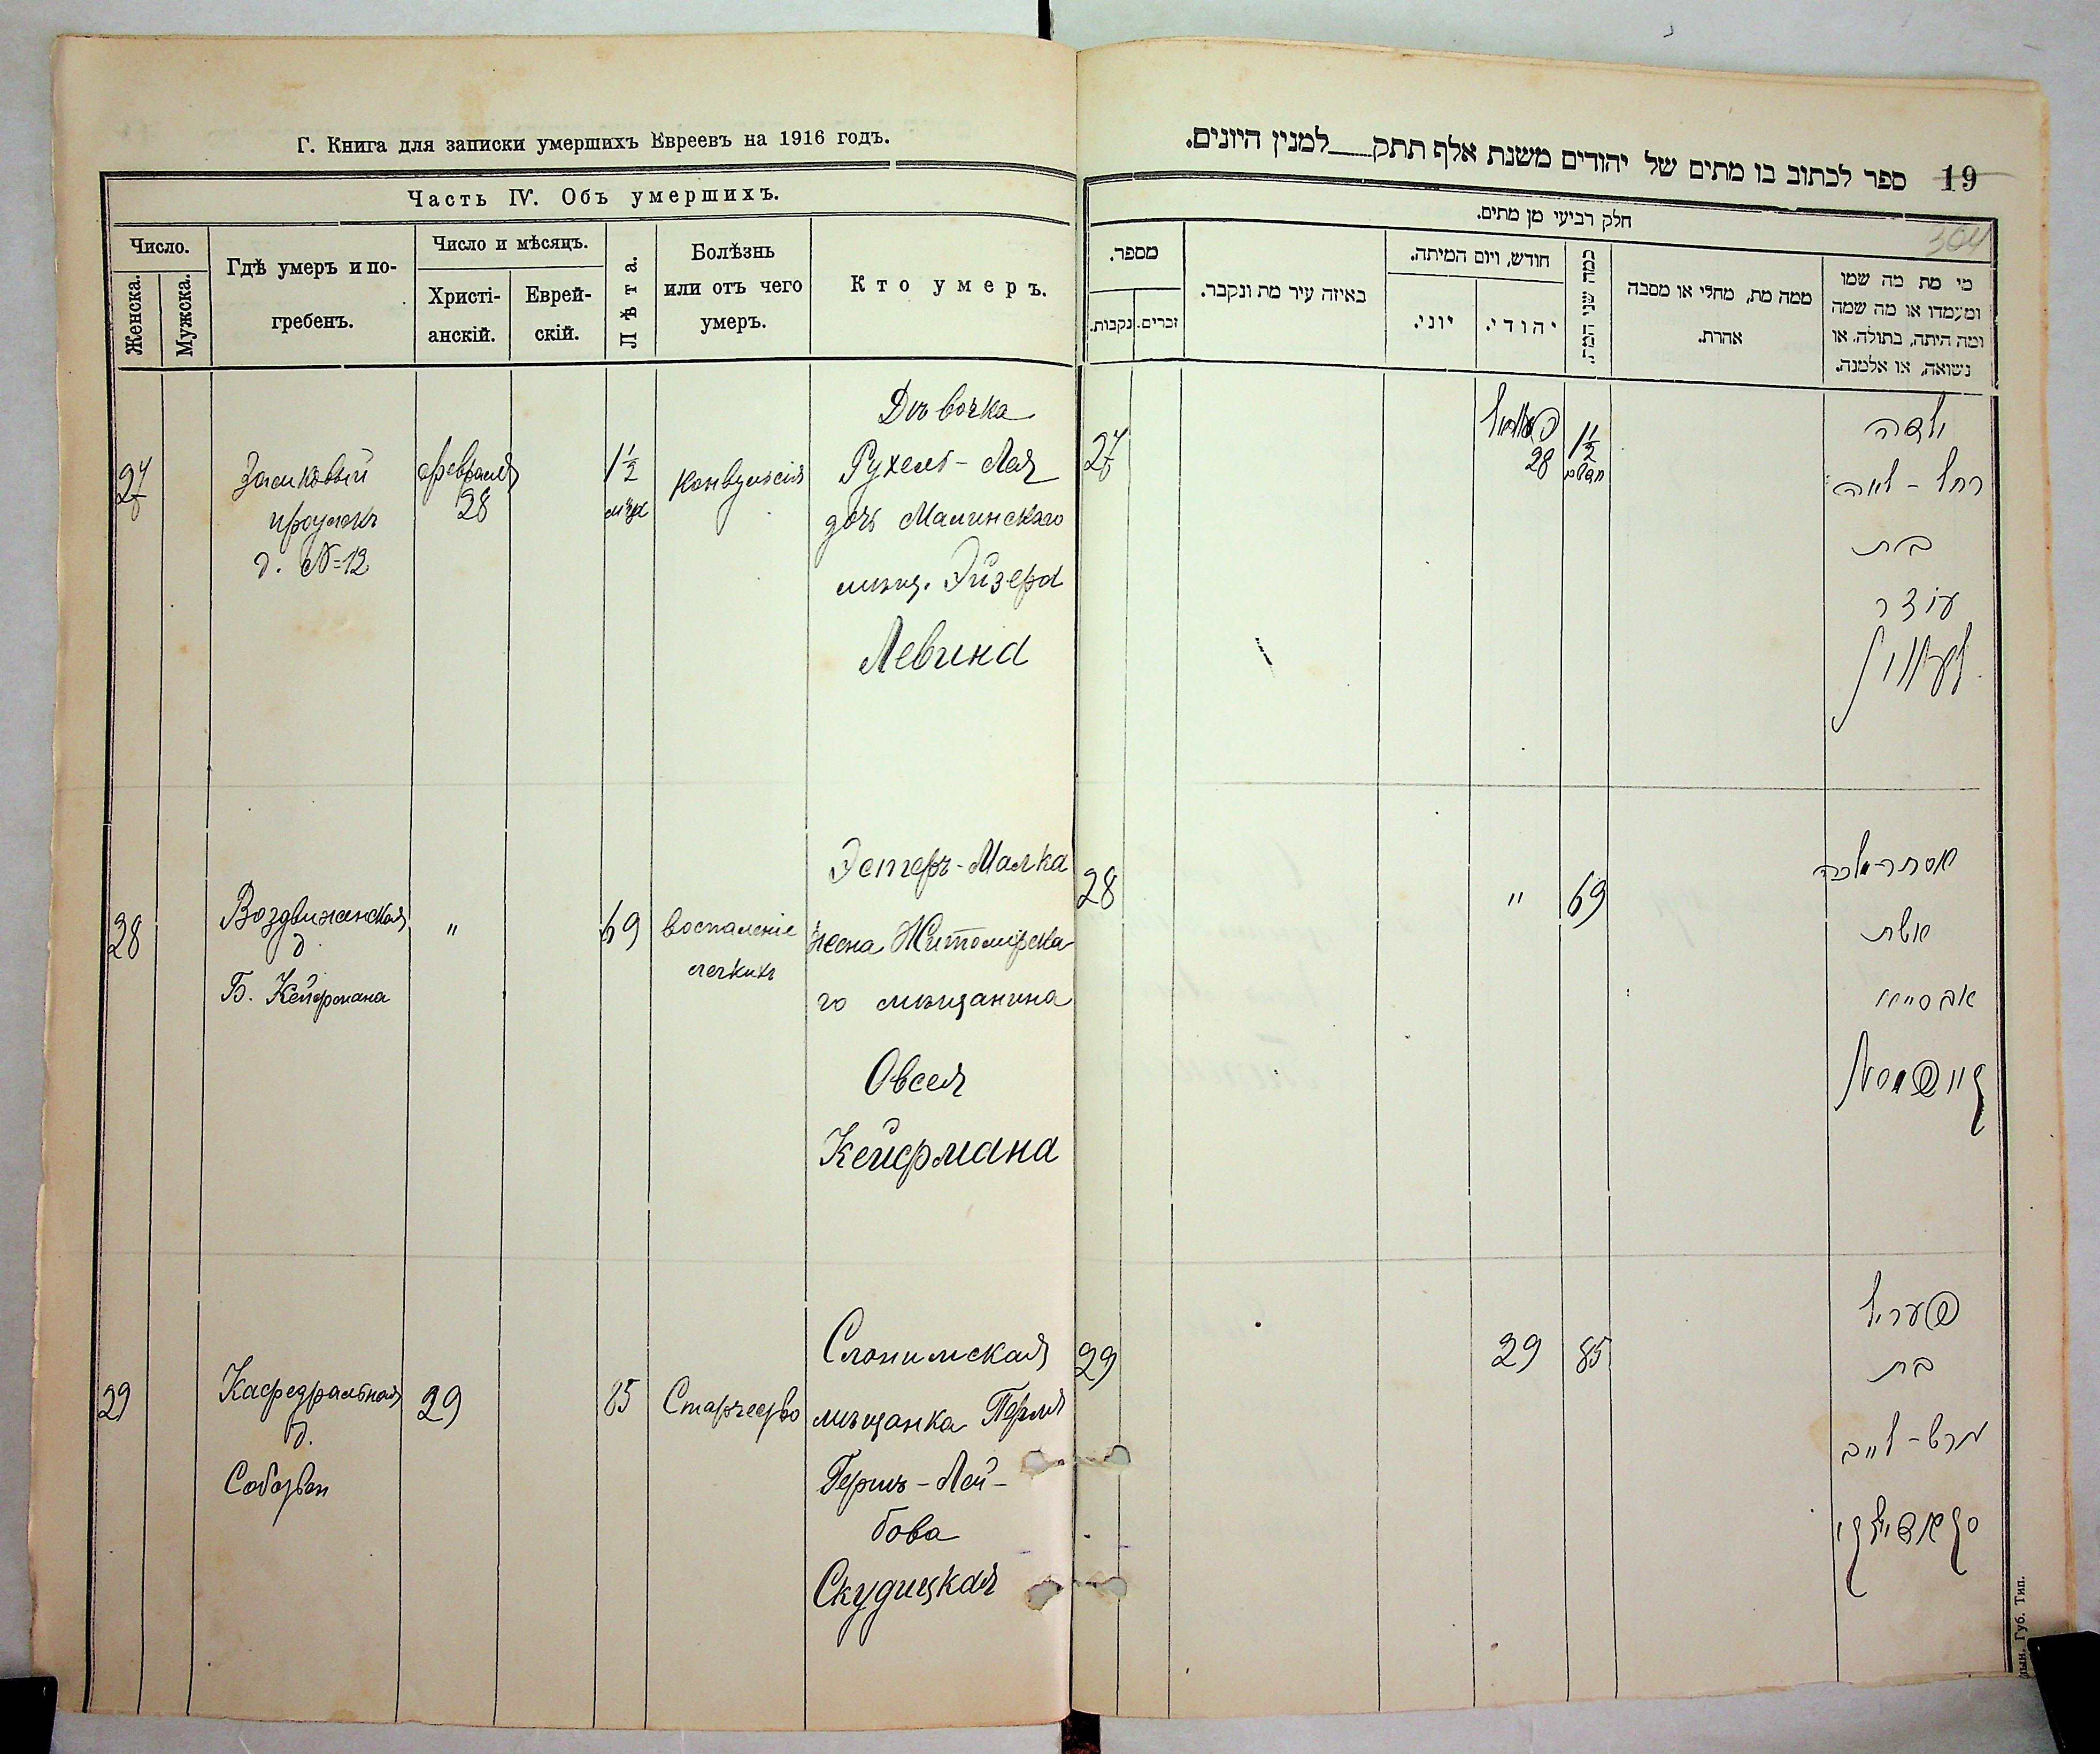 Г. Книга для записки умершихъ Евреевъ на 1916 годъ.
Часть IV. Объ умершихъ.
Число.
Женска.
Мужска.
Гдѣ умеръ и по-
гребенъ.
Число и мѣсяцъ.
Христі-
анскій.
Еврей-
скій.
Лѣта.
Болѣзнь
или отъ чего
умеръ.
Кто умеръ.
27
Замковый
д. №12
февраля
28
1 1/2
мѣс
конвульсія
Дѣвочка
Рухель-Лея
дочь Малинскаго
мѣщ. Эйзера
Левина
28
Воздвиженская
д
Б. Кейфмана
"
69
воспаленіе
легкихъ
Эстеръ-Малка
жена Житомирска-
го мѣщанина
Овсея
Кейфмана
29
Кафедральная
д.
29
85
Старчество
Слонимская
мѣщанка Перля
Гершъ-Лей-
бова
Скудицкая
19 ספר לכתוב בו מתים של יהודים משנת אלף תתק למנין היונים.
304
חלק רביעי מן מתים.
מספר.
נקבות.
זכרים.
באיזה עיר מת ונקבר.
חודש, ויום המיתה.
יוני.
יהודי.
כמה שני המת.
ממה מת, מחלי או מסבה
אחרת.
מי מת מה שמו
ומעמדו או מה שמה
ומה היתה, בתולה, או
נשואה, או אלמנה.
27
28
1 1/2
ילדה
רחל-לאה
בת
עוזר
לעווין
28
"
69
אסתר-מלכה
אשת
קייפמאן
29
29
85
פערל
בת
הרש-לייב
סקאדיצקי
Губ. Тип.